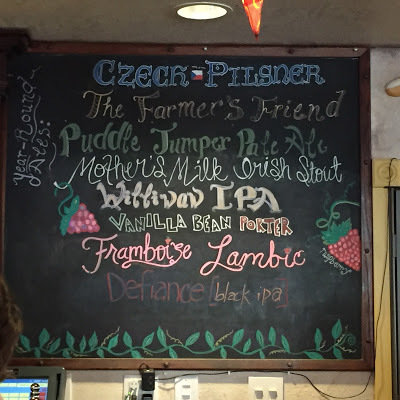 Year-Round
Ales:
Czech Pilsner
The Farmer's Friend
Puddle Jumper Pale Ale
Mother's Milk Irish Stout
IPA
Vanilla Bean Porter
Framboise Lambic
Raspberry
Defiance [black ipa]